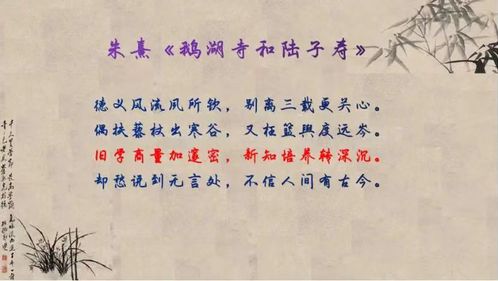 朱熹《鹅湖寺和陆子寿》
德义风流夙所钦，别离三载更关心。
偶扶藜杖出寒谷，又枉篮舆度远岑。
旧学商量加邃密，新知培养转深沉。
却愁说到无言处，不信人间有古今。